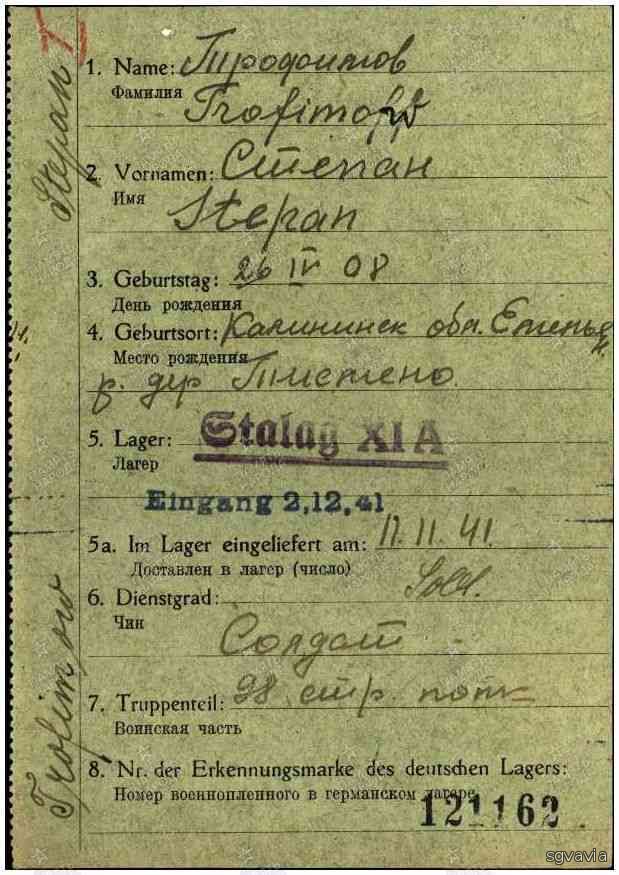 Stepan
Trofimow
1. Name: Трофимов
Фамилия
Trofimoff
2. Vornamen: Степан
Имя
Stepan
3. Geburtstag: 26 IV 08
День рождения
4. Geburtsort: Калининск обл.
Место рождения
р. дер
5. Lager: Stalag XI A
Лагерь
Eingang 2.12.41
5a. Im Lager eingeliefert am: 11. 11. 41.
Доставлен в лагерь (число)
6. Dienstgrad: Sold.
Чин
Солдат
7. Truppenteil: 98 стр.
Воинская часть
8. Nr. der Erkennungsmarke des deutschen Lagers:
Номер военнопленного в германском лагере
121162
sgvavia